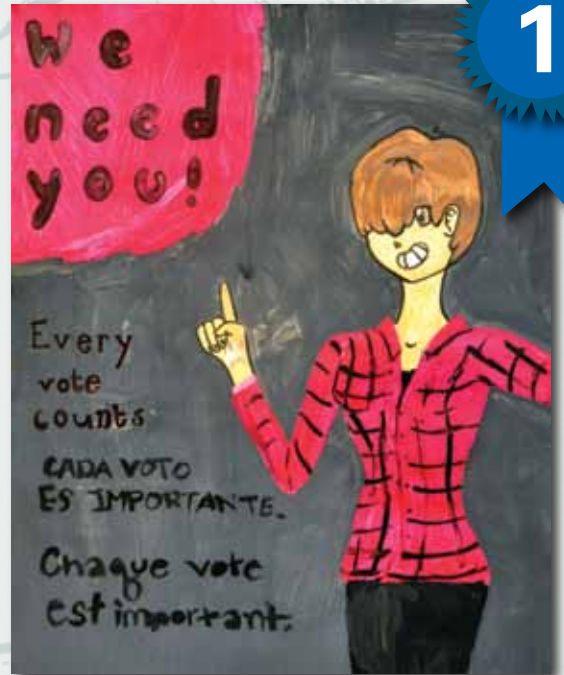 We
need
you!
1
Every
vote
counts
CADA VOTO
ES IMPORTANTE.
Chaque vote
est important.